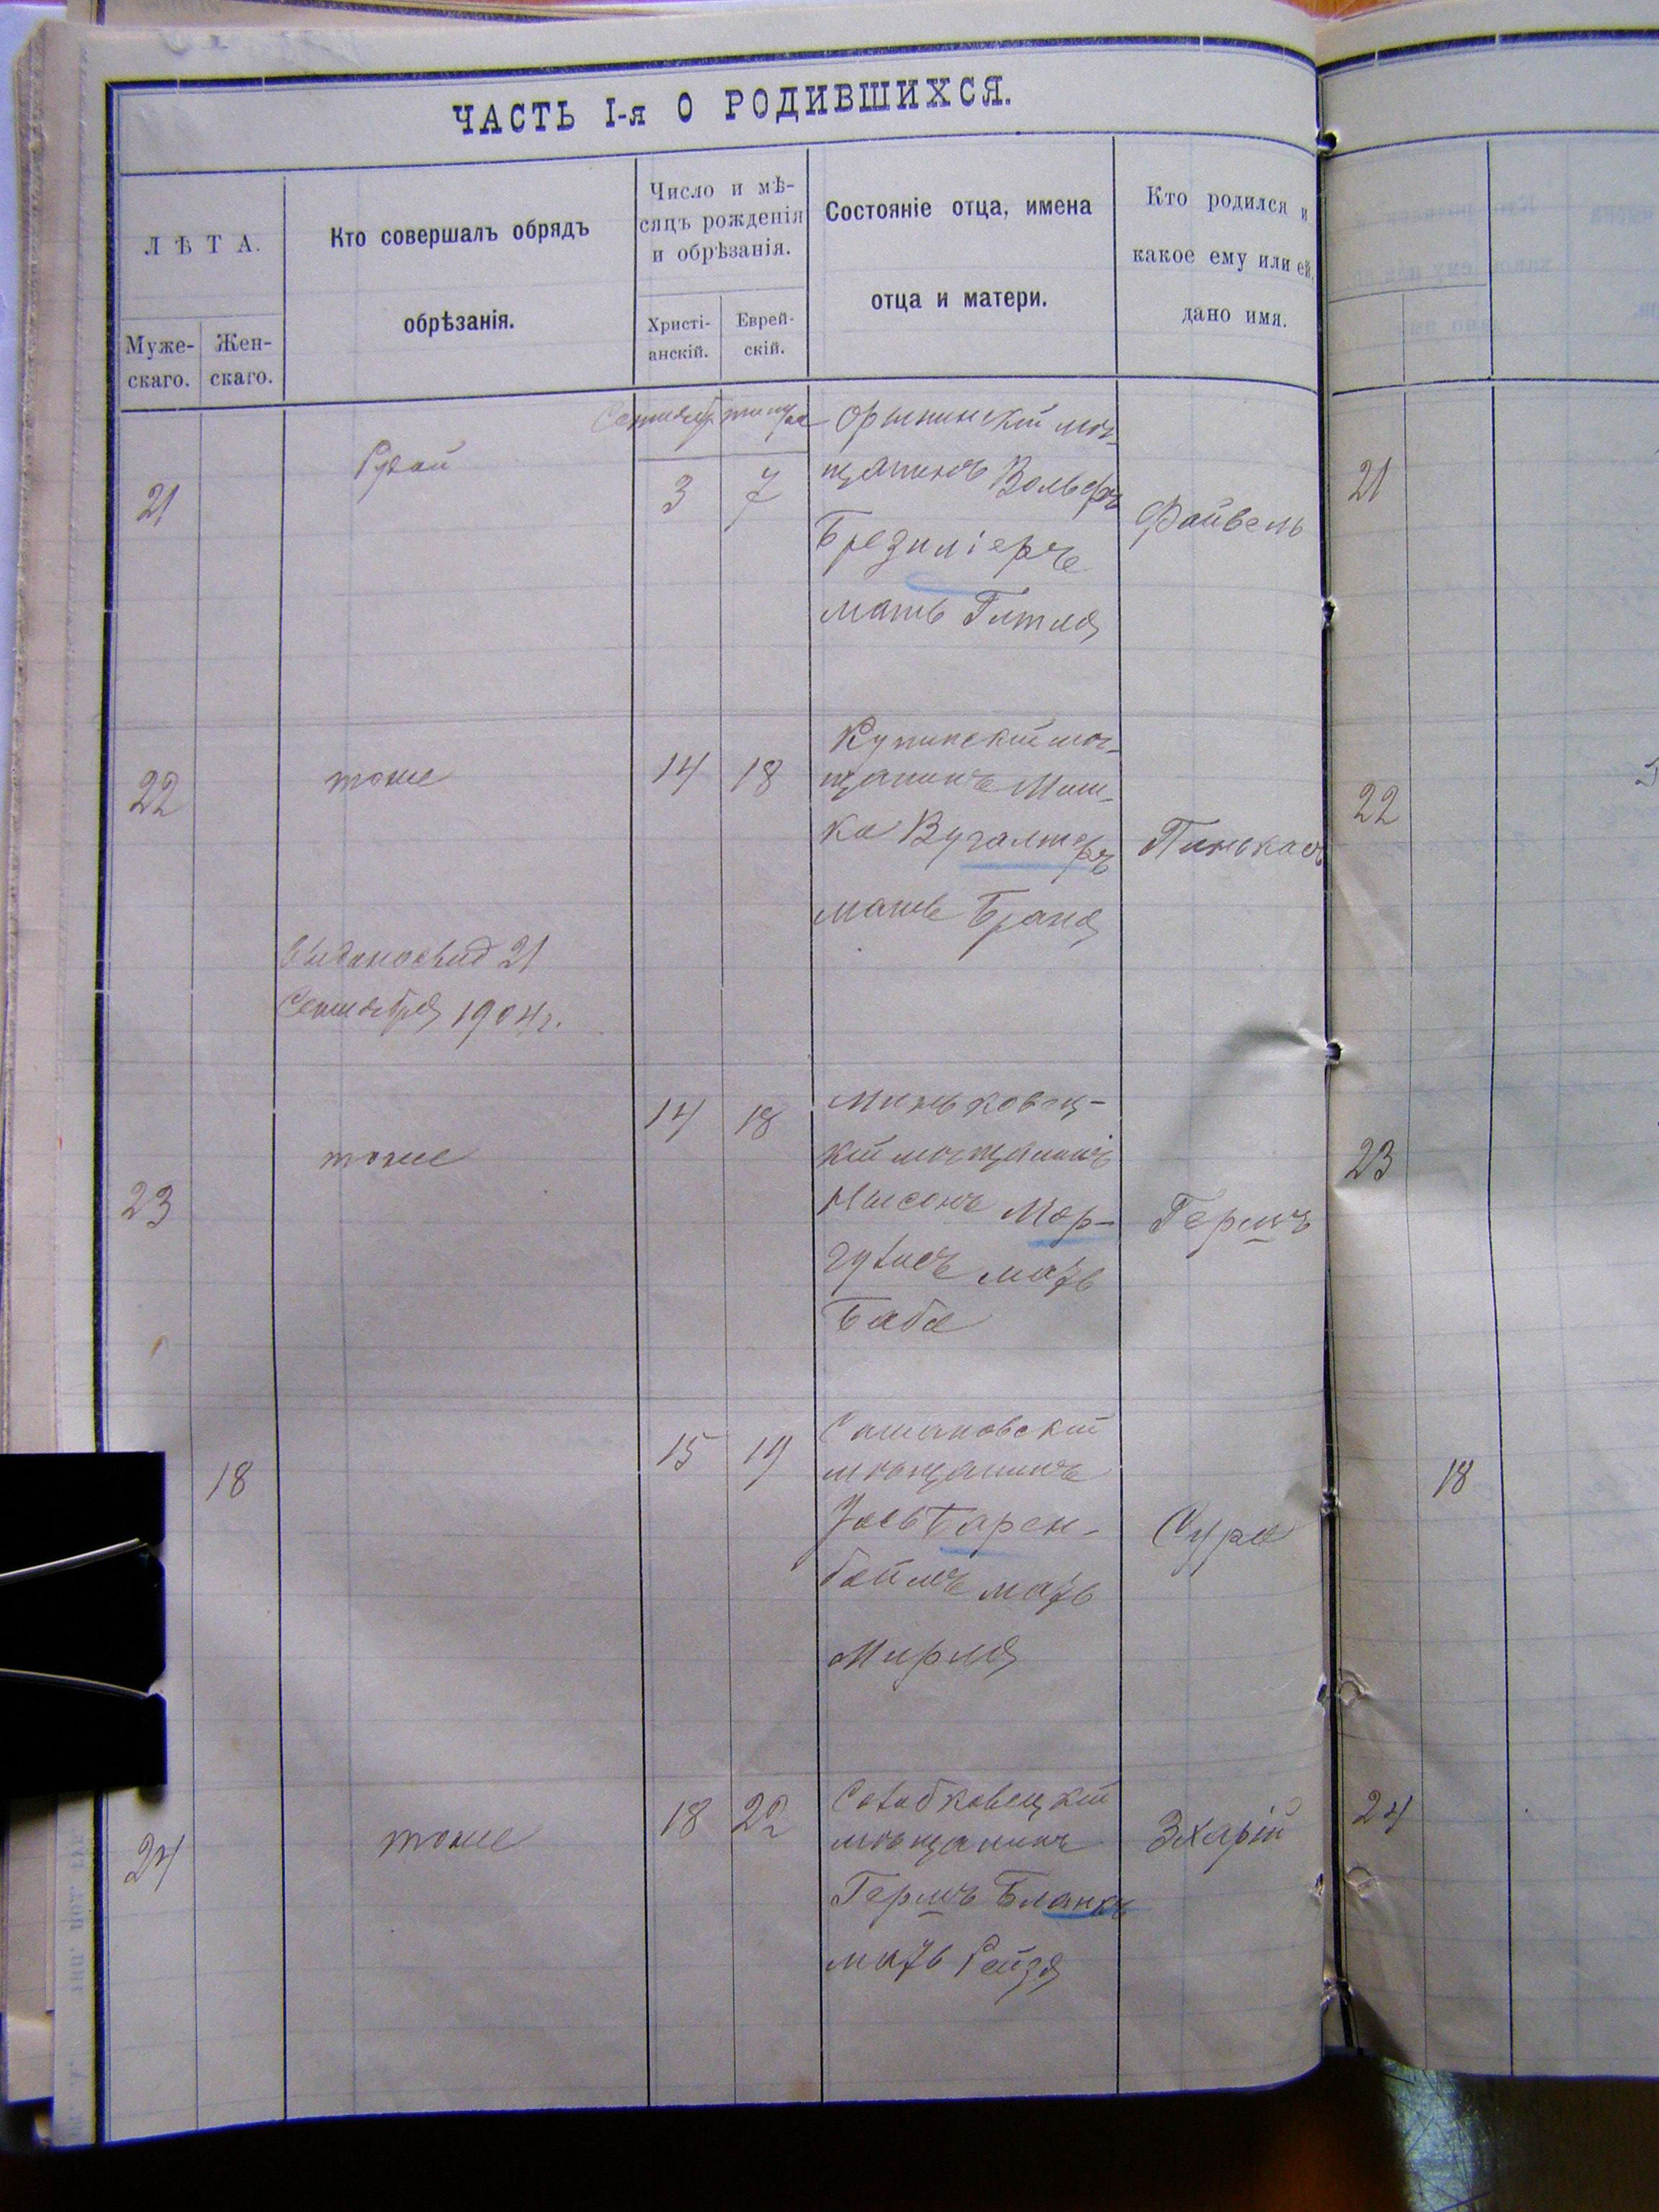 ЧАСТЬ I-я О РОДИВШИХСЯ.
ЛѢТА.
Муже-
скаго.
Жен-
скаго.
Кто совершалъ обрядъ
обрѣзанія.
Число и мѣ-
сяцъ рожденія
и обрѣзанія.
Христі-
анскій.
Еврей-
скій.
Состояніе отца, имена
отца и матери.
Кто родился и
какое ему или ей
дано имя.
21
Рудой
3
7
Орынинскій мѣ-
щанинъ Вольфъ
Брезлiеръ
мать Гитля
Файвель
21
22
тоже
14
18
Купинскій мѣ-
щанинъ Мош-
ко Вугалтеръ
мать Брана
Пинькасъ
22
Выдано свид 21
Сентября 1904 г.
23
тоже
14
18
Миньковец-
кій мѣщанинъ
Нысонъ Мар-
гулисъ мать
Баба
Гершъ
23
18
15
19
Смотановскій
мѣщанинъ
Іось Барен-
боймъ мать
Мирля
Сура
18
24
тоже
18
22
Солобковецкій
мѣщанинъ
Гершъ Бланкъ
мать Рейзя
Зхарій
24